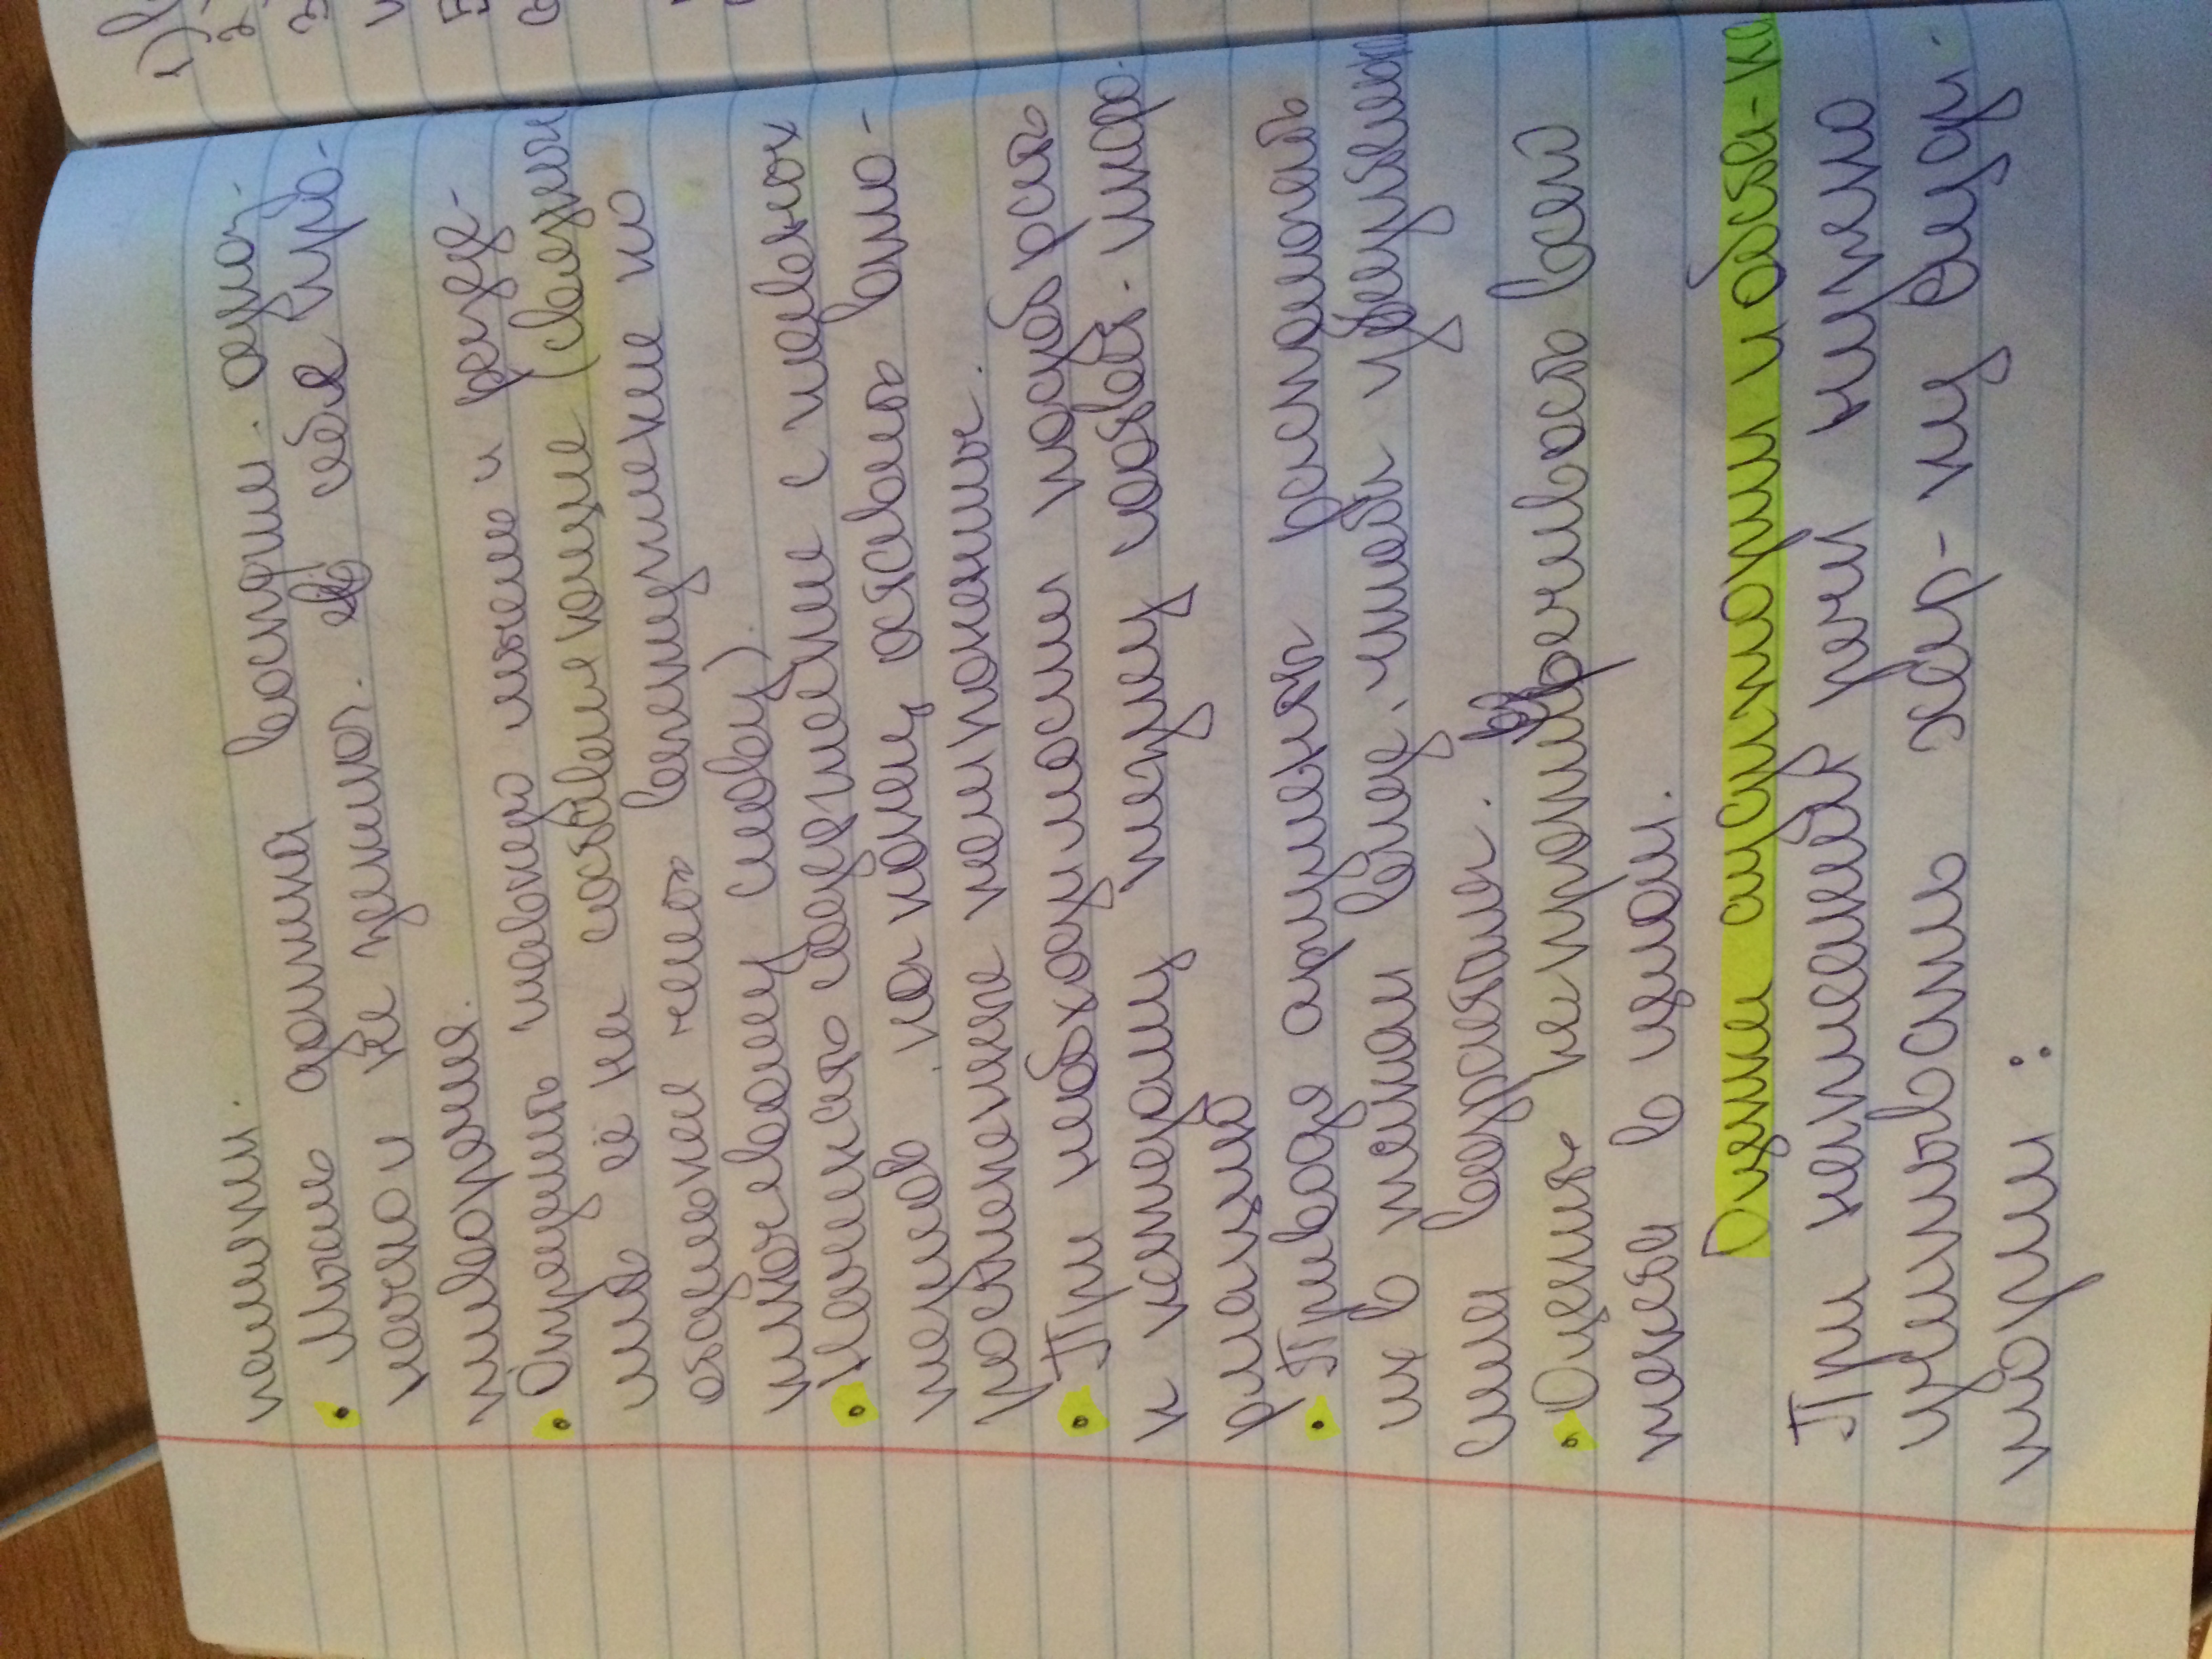 памяти.
• Мысль должна восприн. одноз-
начно и не заключ. в себе про-
тиворечия.
• Определить главную мысль и разде-
лить её на составляющие (связыв
отдельные части
ключевому слову).
• Начинать содержание с главных
тезисов, на конец оставить вто-
ростепенные компоненты.
• При необходимости подобрать
к каждому тезису соответ. инфо-
рмацию
• Приводя аргументы располагать
их в таком виде, чтобы убедительная
сила возрастала.
• Оценить непротиворечивость всего
текста в целом.
Оценка аудитории и обста-ка
При написании речи нужно
учитывать хар-ку ауди-
тории :
1)
2
3
5
6